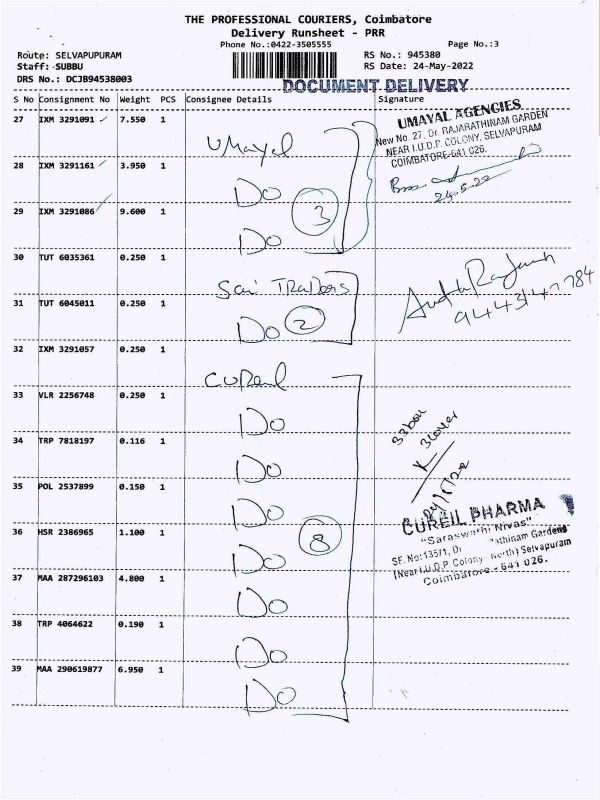 THE PROFESSIONAL COURIERS, Coimbatore
Delivery Runsheet - PRR
Phone No.:0422-3505555
Page No.:3
Route: SELVAPUPURAM
RS No.: 945380
Staff: SUBBU
RS Date: 24-May-2022
DRS No.: DCJB94538003
DOCUMENT DELIVERY
S No Consignment No Weight PCS Consignee Details Signature
27 IXM 3291091 7.550 1 Umayal
UMAYAL AGENCIES
New No. 27, Dr. RAJARATHINAM GARDEN
NEAR I.U.D.P. COLONY, SELVAPURAM
COIMBATORE-641 026.
28 IXM 3291161 3.950 1 Do
24-5-22
29 IXM 3291086 9.600 1 Do
3
30 TUT 6035361 0.250 1 Sai Traders
31 TUT 6045011 0.250 1 Do 2
32 IXM 3291057 0.250 1 Cureil
33 VLR 2256748 0.250 1 Do
34 TRP 7818197 0.116 1 Do
35 POL 2537899 0.150 1 Do
CUREIL PHARMA
"Saraswathi Nivas"
SF. No:135/1, Dr. Rathinam Gardens
(Near I.U.D.P Colony North) Selvapuram
Coimbatore - 641 026.
36 HSR 2386965 1.100 1 Do
8
37 MAA 287296103 4.800 1 Do
38 TRP 4064622 0.190 1 Do
39 MAA 290619877 6.950 1 Do